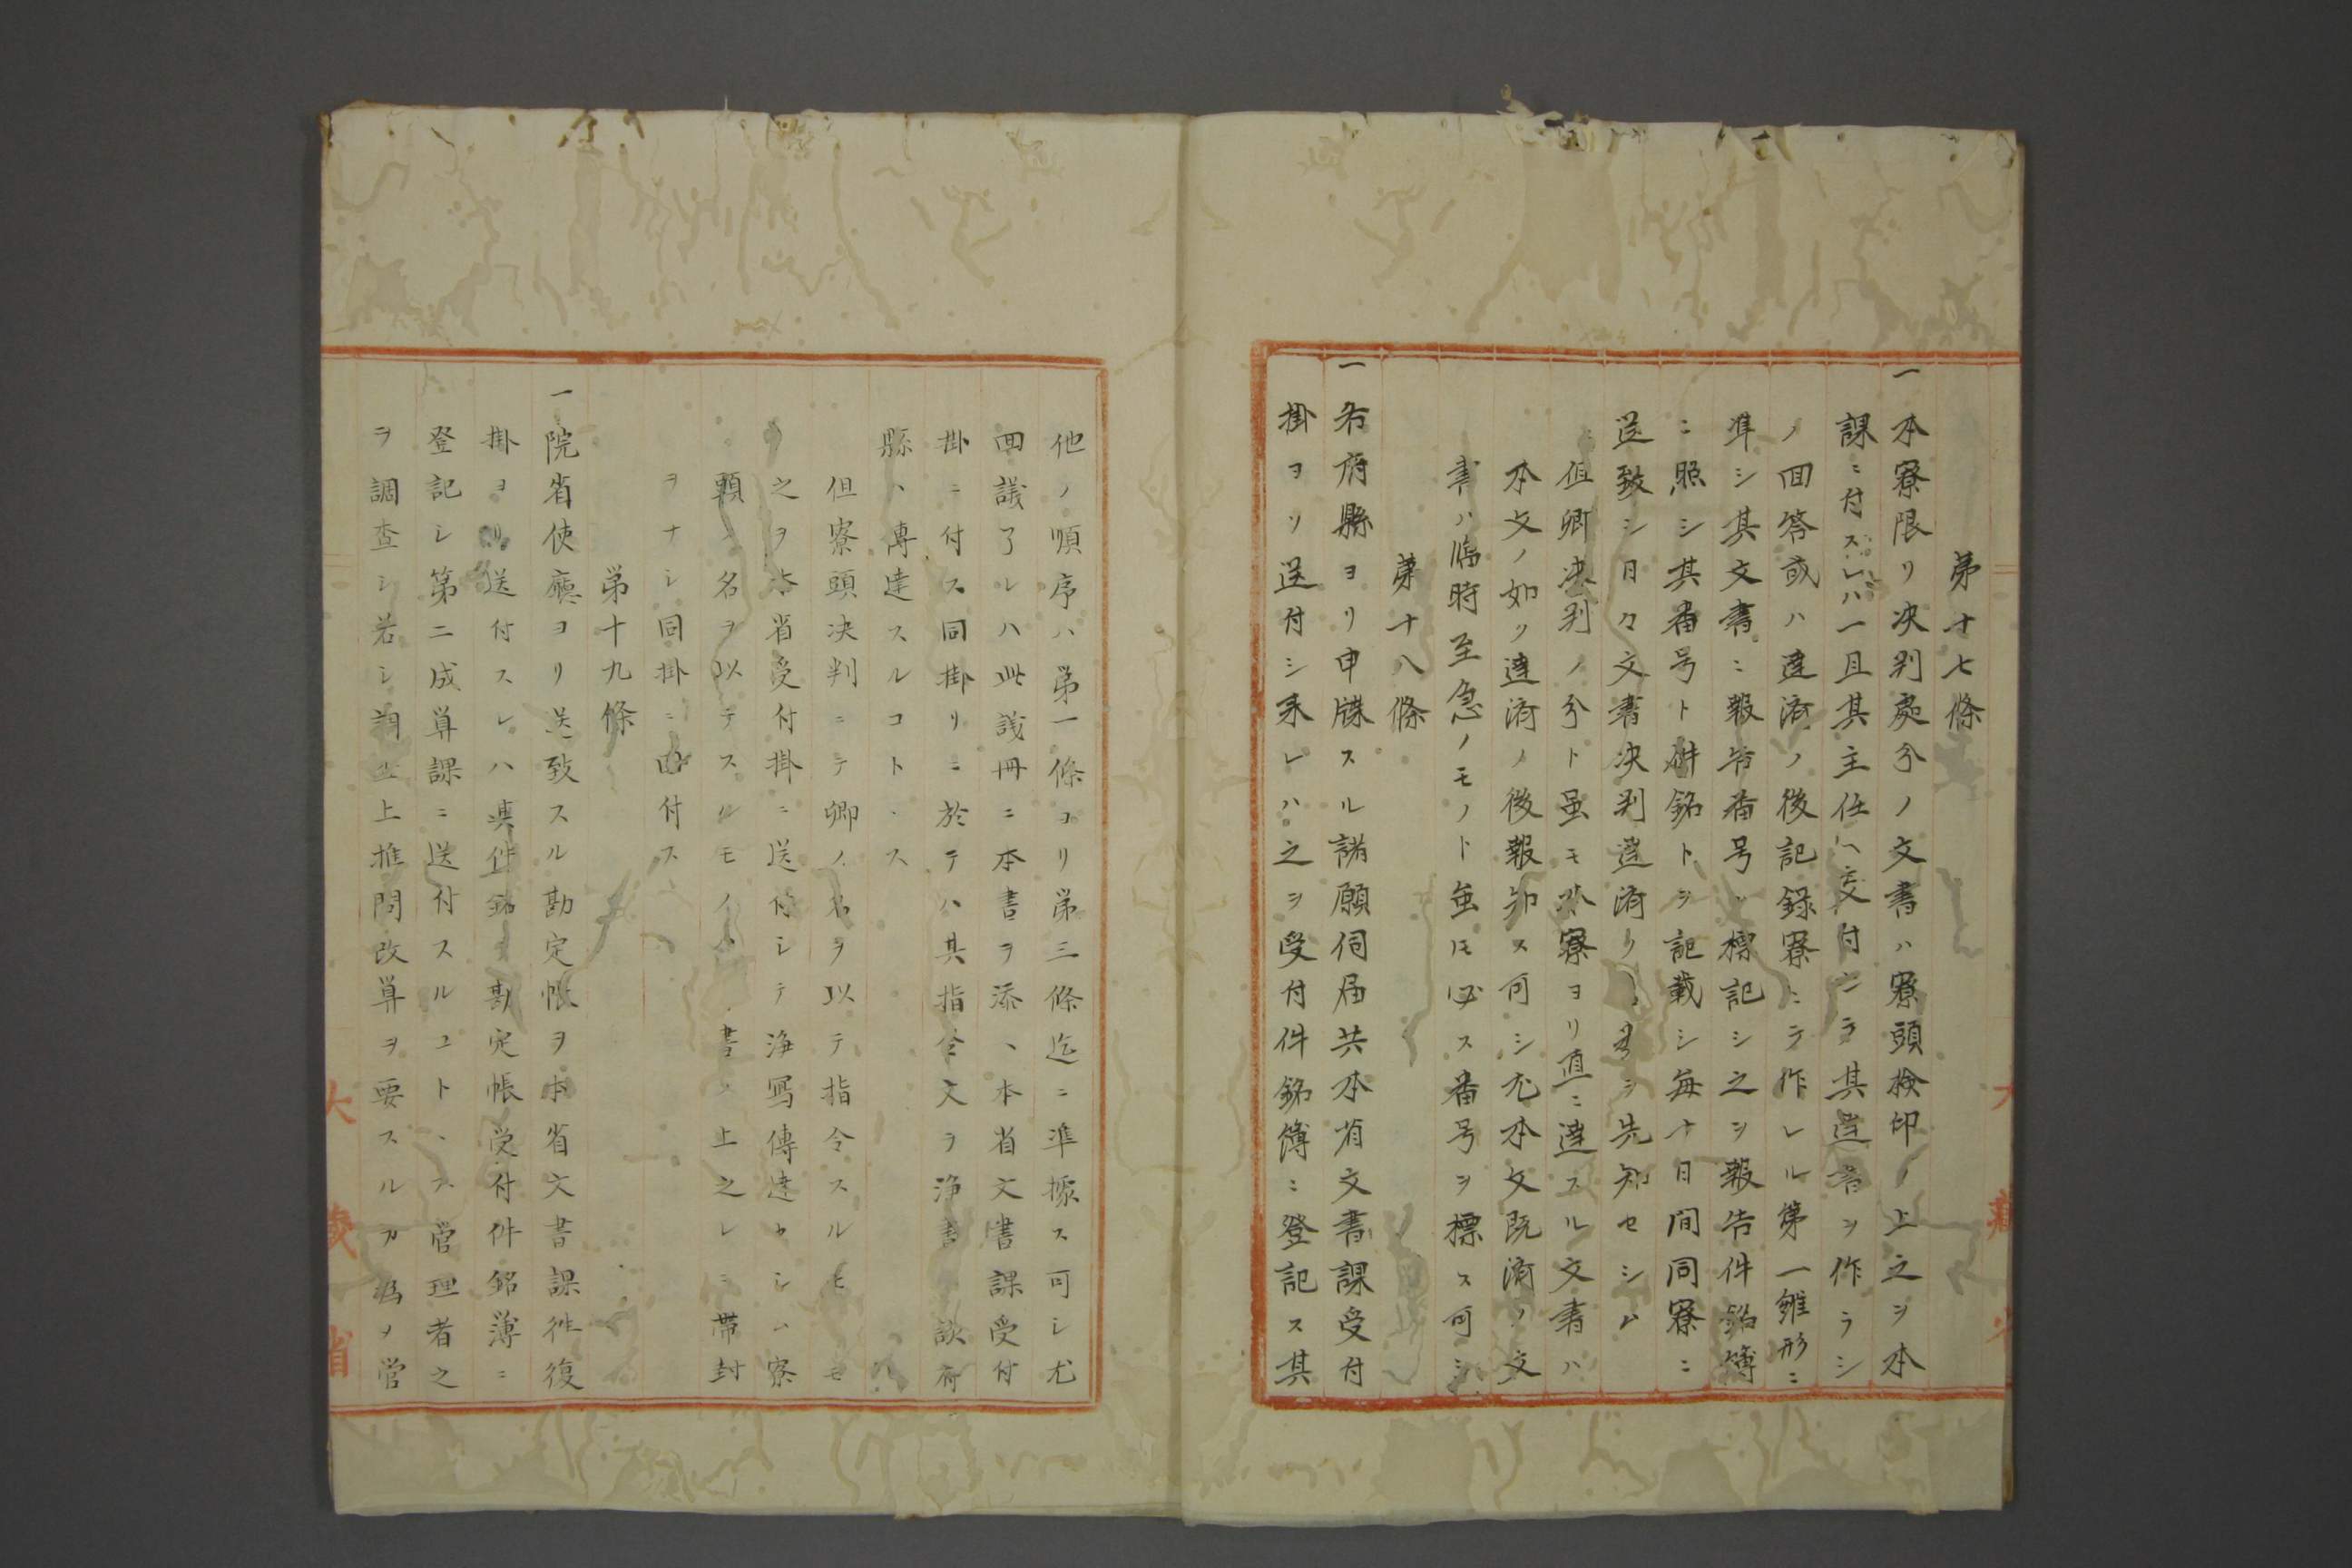 第十七條
一本寮限リ決判處分ノ文書ハ寮頭検印ノ上之ヲ本
課ニ付スレハ一旦其主任ヘ交付シテ其達書ヲ作ラシ
ノ回答或ハ達済ノ後記録寮ニテ作レル第一雛形ニ
準シ其文書ニ報告番号ヲ標記シ之ヲ報告件銘簿
ニ照シ其番号ト件銘トヲ記載シ毎十日間同寮ニ
送致シ日々文書決判達済リヲ先知セシム
但卿決判ノ分ト虽モ本寮ヨリ直ニ達スル文書ハ
本文ノ如ク達済ノ後報知ス可シ尤本文既済ノ文
書ハ臨時至急ノモノト虽ㇳモ必ス番号ヲ標ス可シ
第十八條
一各府縣ヨリ申牒スル諸願伺届共本省文書課受付
掛ヨリ送付シ来レハ之ヲ受付件銘簿ニ登記ス其
他ノ順序ハ第一條ヨリ第三條迄ニ準據ス可シ尤
回議了レハ此議冊ニ本書ヲ添ヘ本省文書課受付
掛ニ付ス同掛リニ於テハ其指令文ヲ浄書シ該府
縣ヘ傳達スルコトヽス
但寮頭決判ニテ卿ノ名ヲ以テ指令スルモ
之ヲ本省受付掛ニ送付シテ浄写傳達セシム寮
頭ノ名ヲ以テスルモノハ書ノ上之レニ帯封
ヲナシ同掛ニ付ス
第十九條
一院省使廳ヨリ送致スル勘定帳ヲ本省文書課徃復
掛ヨリ送付スレハ其件銘ヲ勘定帳受付件銘簿ニ
登記シ第二成算課ニ送付スルコトヽス管理者之
ヲ調査シ若シ調査上推問改算ヲ要スルカ為メ管
大藏省